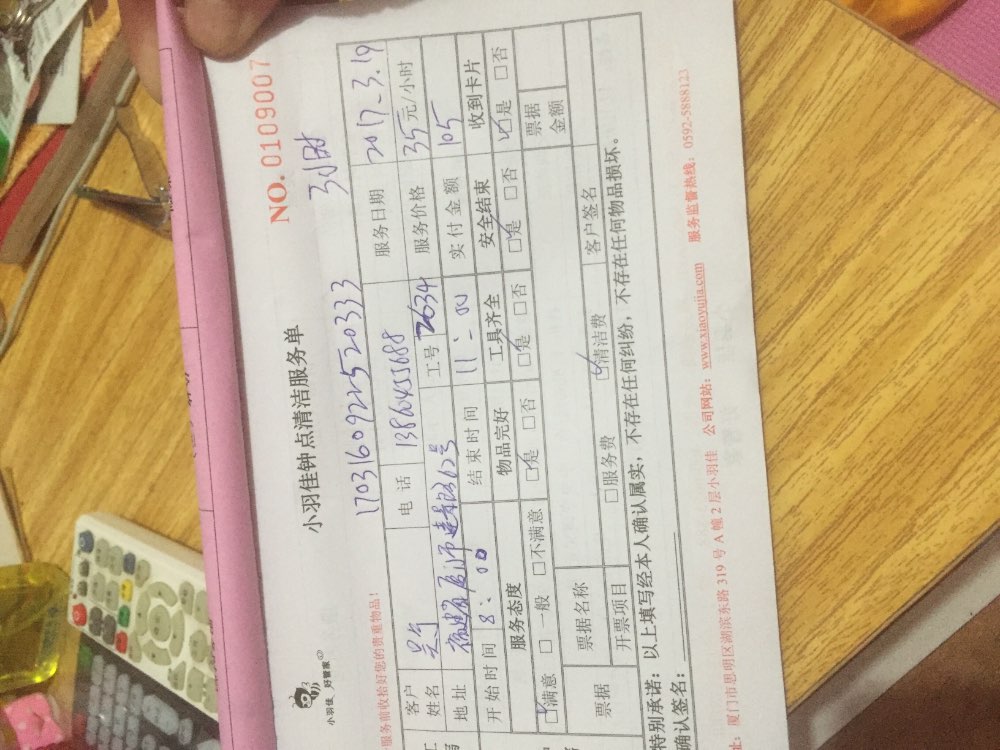 小羽佳 好管家
小羽佳钟点清洁服务单
NO. 0109007
服务前收拾好您的贵重物品!
17031609225520333
3小时
客户姓名
电话 13860455688
服务日期 2017.3.19
地址 福建省厦门市
工号 2634
服务价格 35元/小时
开始时间 8:00
结束时间 11:00
实付金额 105
服务态度
物品完好
工具齐全
安全结束
收到卡片
☑满意 □一般 □不满意
☑是 □否
☑是 □否
☑是 □否
☑是 □否
票据
票据名称
客户签名
票据金额
开票项目
□服务费
☑清洁费
特别承诺:以上填写经本人确认属实,不存在任何纠纷,不存在任何物品损坏。
确认签名:
址:厦门市思明区湖滨东路319号A幢2层小羽佳 公司网站:www.xiaoyujia.com 服务监督热线:0592-5888123